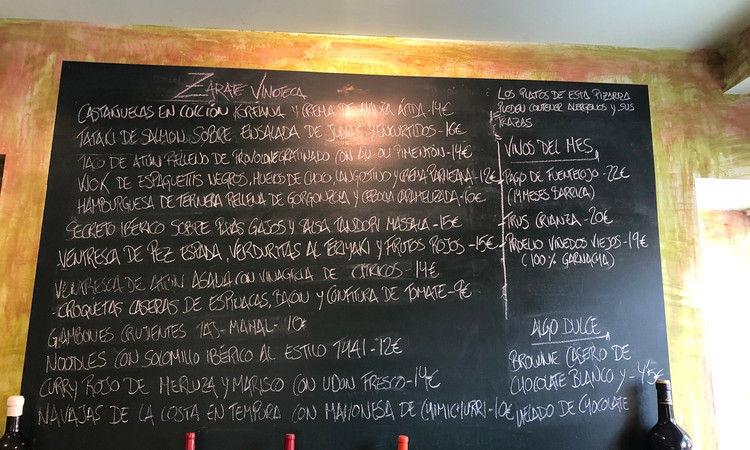 ZARATE VINOTECA
CASTAÑUELAS EN COCCIÓN KOREANA Y CREMA DE ÁCIDA - 14€
TATAKI DE SALMON SOBRE ENSALADA DE JUDIAS Y ENCURTIDOS - 16€
TACO DE ATÚN RELLENO DE PROVOLONE GRATINADO CON ALI-OLI PIMENTÓN - 14€
WOK DE ESPAGUETTIS NEGROS, HUEVOS DE CHOCO, LANGOSTINO Y CREMA PARMESANA - 12€
HAMBURGUESA DE TERNERA RELLENA DE GORGONZOLA Y CEBOLLA CARAMELIZADA - 10€
SECRETO IBÉRICO SOBRE PAPAS GAJOS Y SALSA TANDORI MASSALA - 15€
VENTRESCA DE PEZ ESPADA, VERDURITAS AL TERIYAKI Y FRUTOS ROJOS - 15€
VENTRESCA DE ATÚN ASADA CON VINAGRETA DE CITRICOS - 14€
- CROQUETAS CASERAS DE ESPINACAS, BACON Y CONFITURA DE TOMATE - 9€
GAMBONES CRUJIENTES TAJ-MAHAL - 10€
NOODLES CON SOLOMILLO IBÉRICO AL ESTILO THAI - 12€
CURRY ROJO DE MERLUZA Y MARISCO CON UDON FRESCO - 14€
NAVAJAS DE LA COSTA EN TEMPURA CON MAHONESA DE CHIMICHURRI - 10€
LOS PLATOS DE ESTA PIZARRA
PUEDEN CONTENER ALERGENOS Y SUS
TRAZAS
VINOS DEL MES
- PAGO DE FUENTELOJO - 22€
(14 MESES BARRICA)
- TRUS CRIANZA - 20€
- VIÑEDOS VIEJOS - 19€
(100% GARNACHA)
ALGO DULCE
BROWNIE CASERO DE
CHOCOLATE BLANCO Y - 4'5€
HELADO DE CHOCOLATE